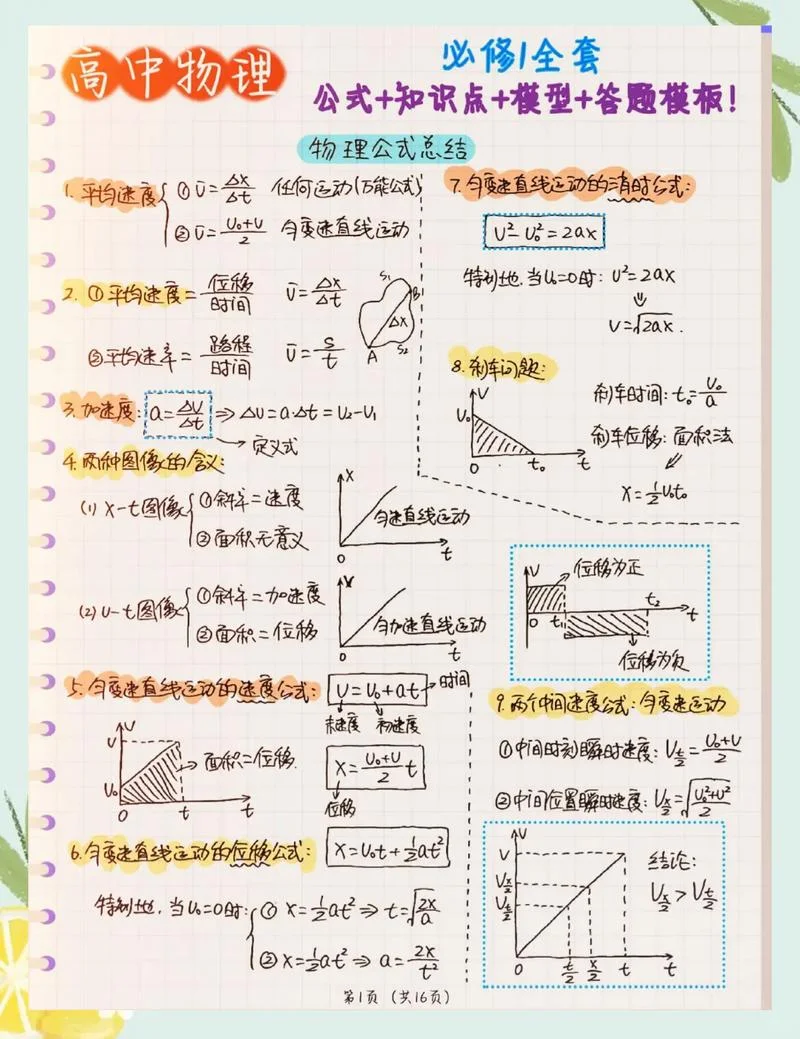 高中物理
必修1全套
公式+知识点+模型+答题模板!
物理公式总结
1. 平均速度 ①ῡ=Δx/Δt 任何运动(万能公式)
②ῡ=(υ₀+υ)/2 匀变速直线运动
2. ①平均速度=位移/时间 ῡ=Δx/Δt
S₁ B Δx A S₂
②平均速率=路程/时间 ῡ=s/t
3. 加速度: a=Δυ/Δt ⇒ Δυ=a·Δt=υ₂-υ₁
定义式
4. 两种图像的含义:
(1) x-t图像 ①斜率=速度
②面积无意义
x 匀速直线运动 0 t
(2) υ-t图像 ①斜率=加速度
②面积=位移
v 匀加速直线运动 0 t
5. 匀变速直线运动的速度公式: υ=υ₀+at 时间
末速度 初速度
V υ υ₀ 0 t t
面积=位移
x=(υ₀+υ)/2 t
位移
6. 匀变速直线运动的位移公式: x=υ₀t+½at²
特别地,当υ₀=0时: ① x=½at² ⇒ t=√(2x/a)
② x=½at² ⇒ a=2x/t²
7. 匀变速直线运动的消时公式:
υ²-υ₀²=2ax
特别地,当υ₀=0时: υ²=2ax
⇓
υ=√2ax.
8. 刹车问题:
V υ₀ 0 t₀ t
刹车时间: t₀=υ₀/a
刹车位移: 面积法
x=½υ₀t₀
V 位移为正
0 t₁ t₂ t
位移为负
9. 两个中间速度公式: 匀变速运动
①中间时刻瞬时速度: υ_(t/2)=(υ₀+υ)/2
②中间位置瞬时速度: υ_(x/2)=√((υ₀²+υ²)/2)
V
V
υ_(x/2)
υ_(t/2)
0 t/2 x/2 t t
结论:
υ_(x/2)>υ_(t/2)
第1页 (共16页)